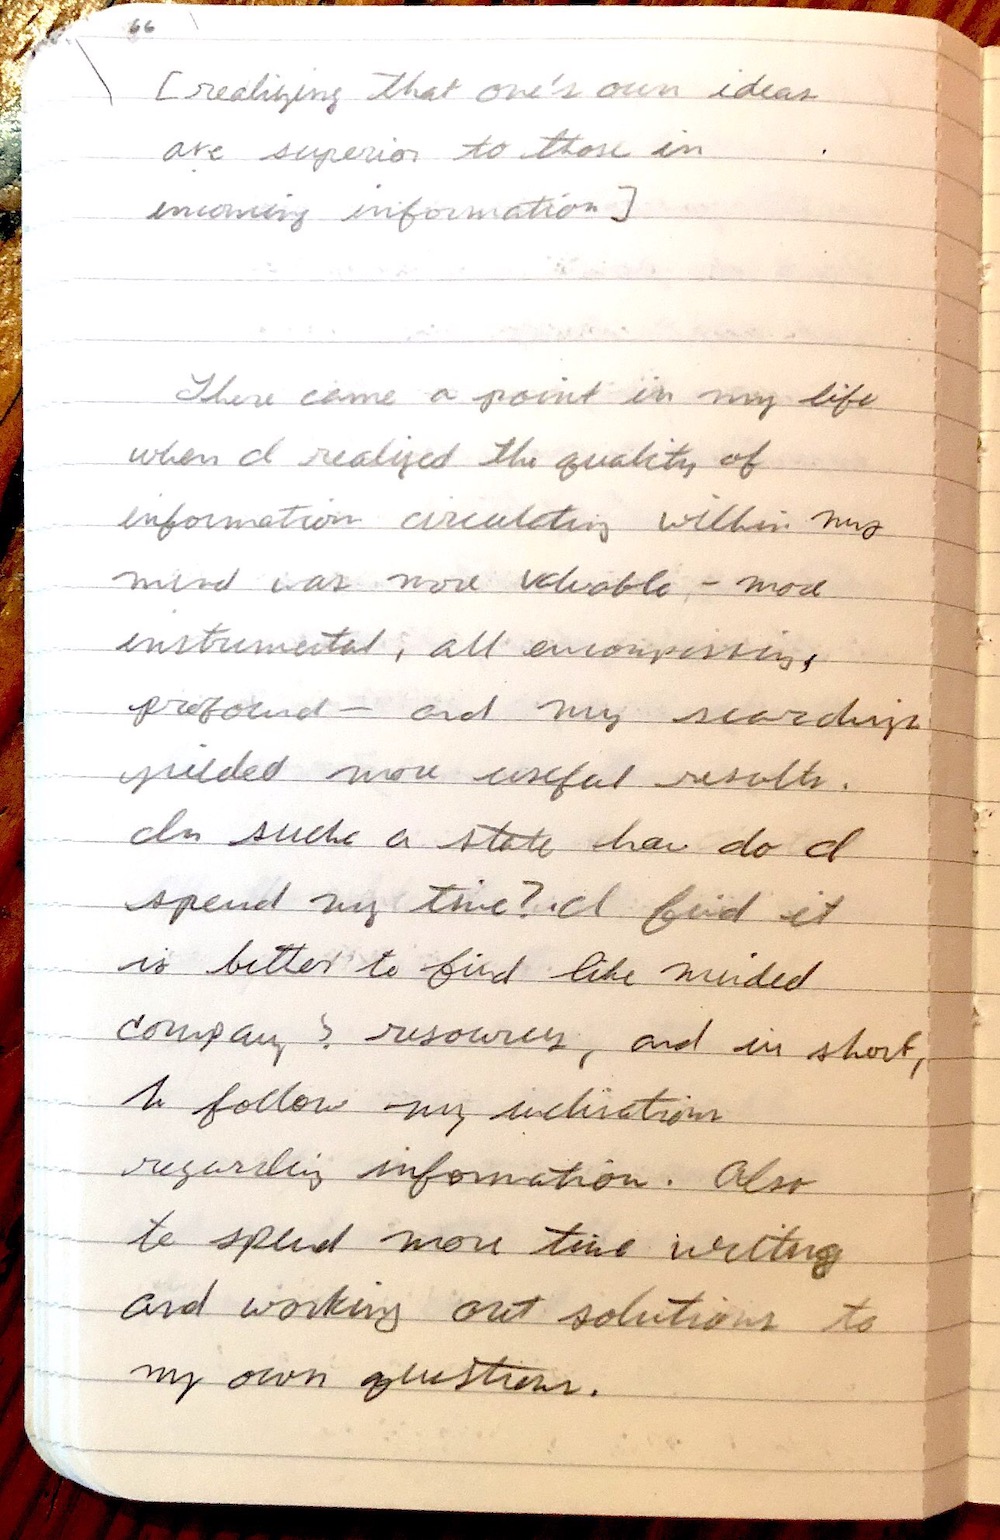 66
[realizing that one's own ideas
are superior to those in
incoming information]
There came a point in my life
when I realized the quality of
information circulating within my
mind was more valuable - more
instrumental, all encompassing,
profound - and my searchings
yielded more useful results.
In such a state how do I
spend my time? I find it
is better to find like minded
company & resources, and in short,
to follow my inclinations
regarding information. Also
to spend more time writing
and working out solutions to
my own questions.